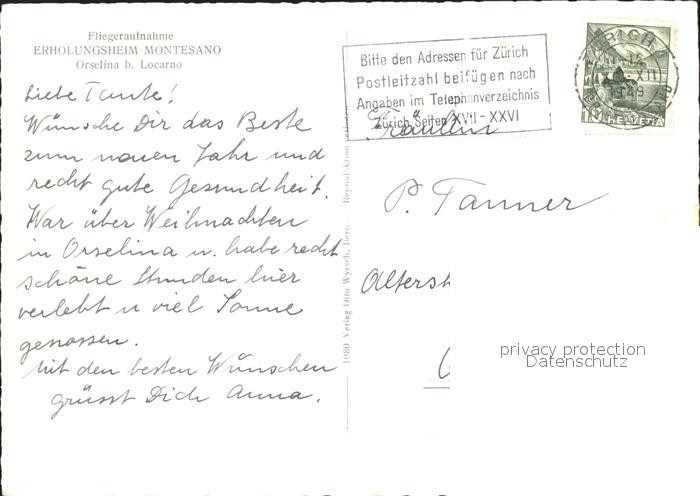 Fliegeraufnahme
ERHOLUNGSHEIM MONTESANO
Orselina b. Locarno
Liebe Tante!
Wünsche Dir das Beste
zum neuen Jahr und
recht gute Gesundheit.
War über Weihnachten
in Orselina u. habe recht
schöne Stunden hier
verlebt u viel Sonne
genossen.
Mit den besten Wünschen
grüsst Dich Anna.
1080 Verlag Otto Wyrsch, Bern. Reproduktion verboten
Bitte den Adressen für Zürich
Postleitzahl beifügen nach
Angaben im Telephonverzeichnis
Zürich Seiten XVII - XXVI
ZÜRICH
XII
10 HELVETIA
Fräulein
P. Tanner
Alterst
privacy protection
Datenschutz